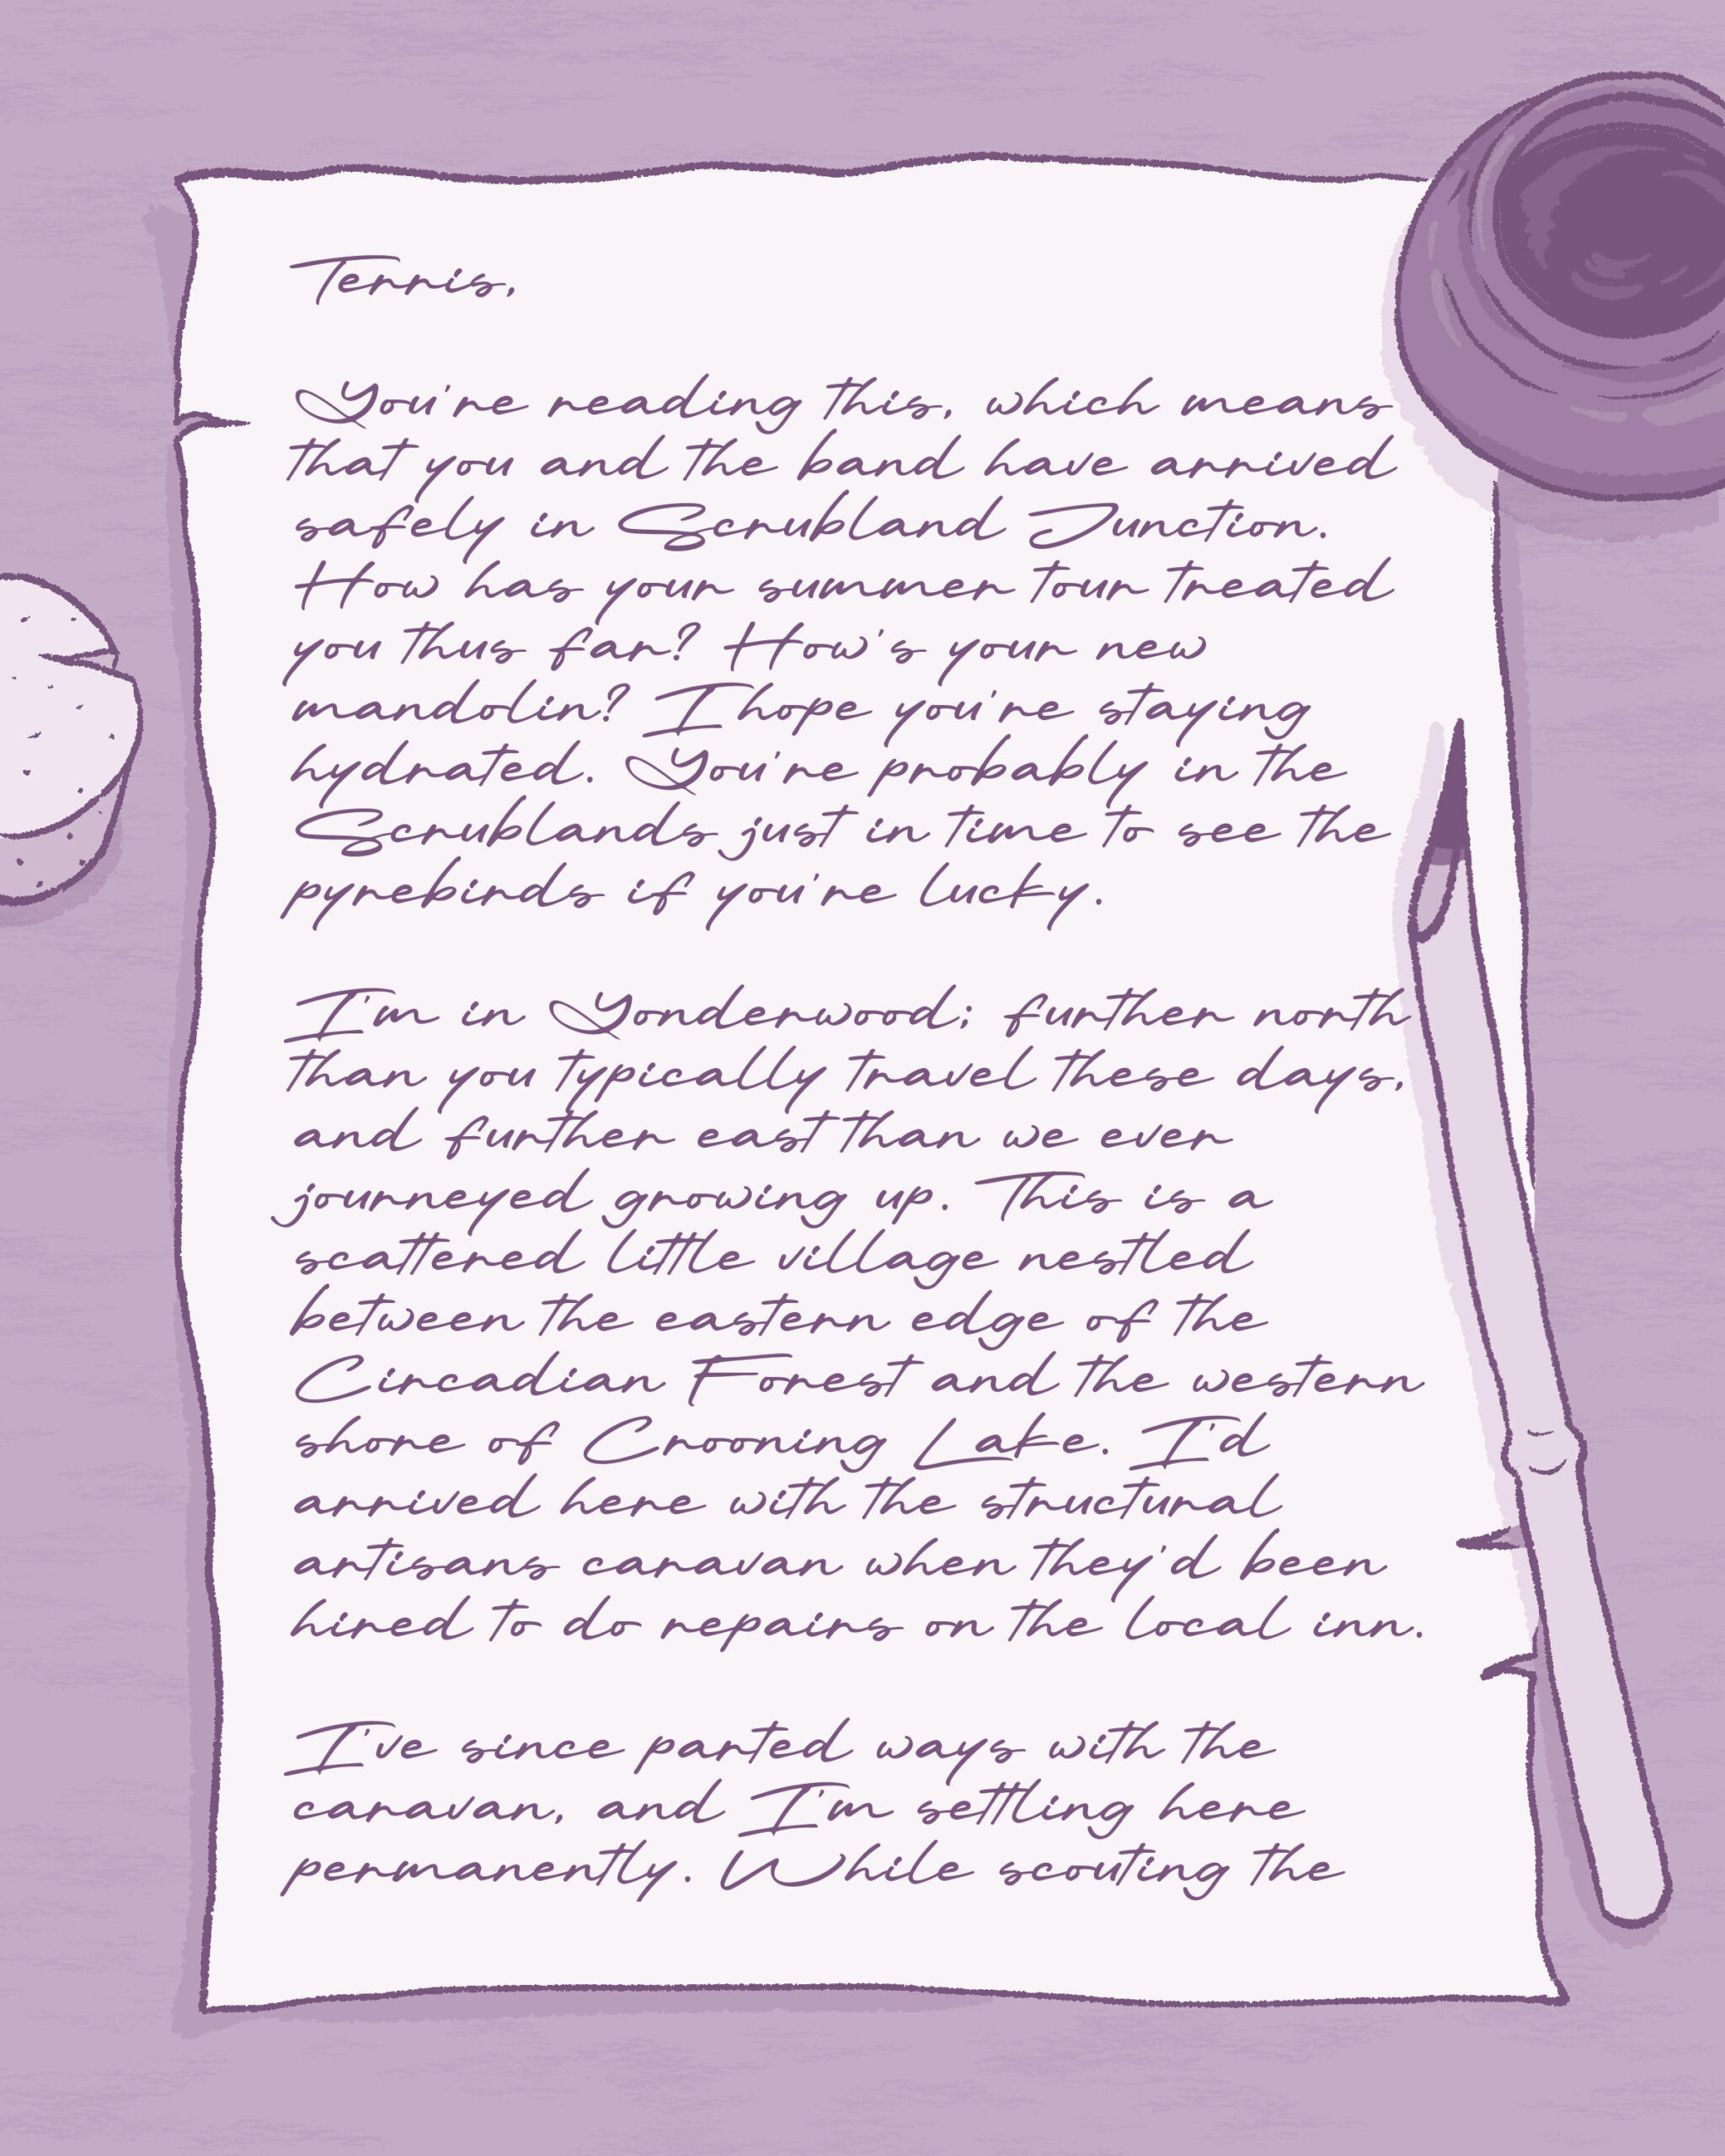 Terris,
You're reading this, which means
that you and the band have arrived
safely in Scrubland Junction.
How has your summer tour treated
you thus far? How's your new
mandolin? I hope you're staying
hydrated. You're probably in the
Scrublands just in time to see the
pyrebirds if you're lucky.
I'm in Yonderwood; further north
than you typically travel these days,
and further east than we ever
journeyed growing up. This is a
scattered little village nestled
between the eastern edge of the
Circadian Forest and the western
shore of Crooning Lake. I'd
arrived here with the structural
artisans caravan when they'd been
hired to do repairs on the local inn.
I've since parted ways with the
caravan, and I'm settling here
permanently. While scouting the